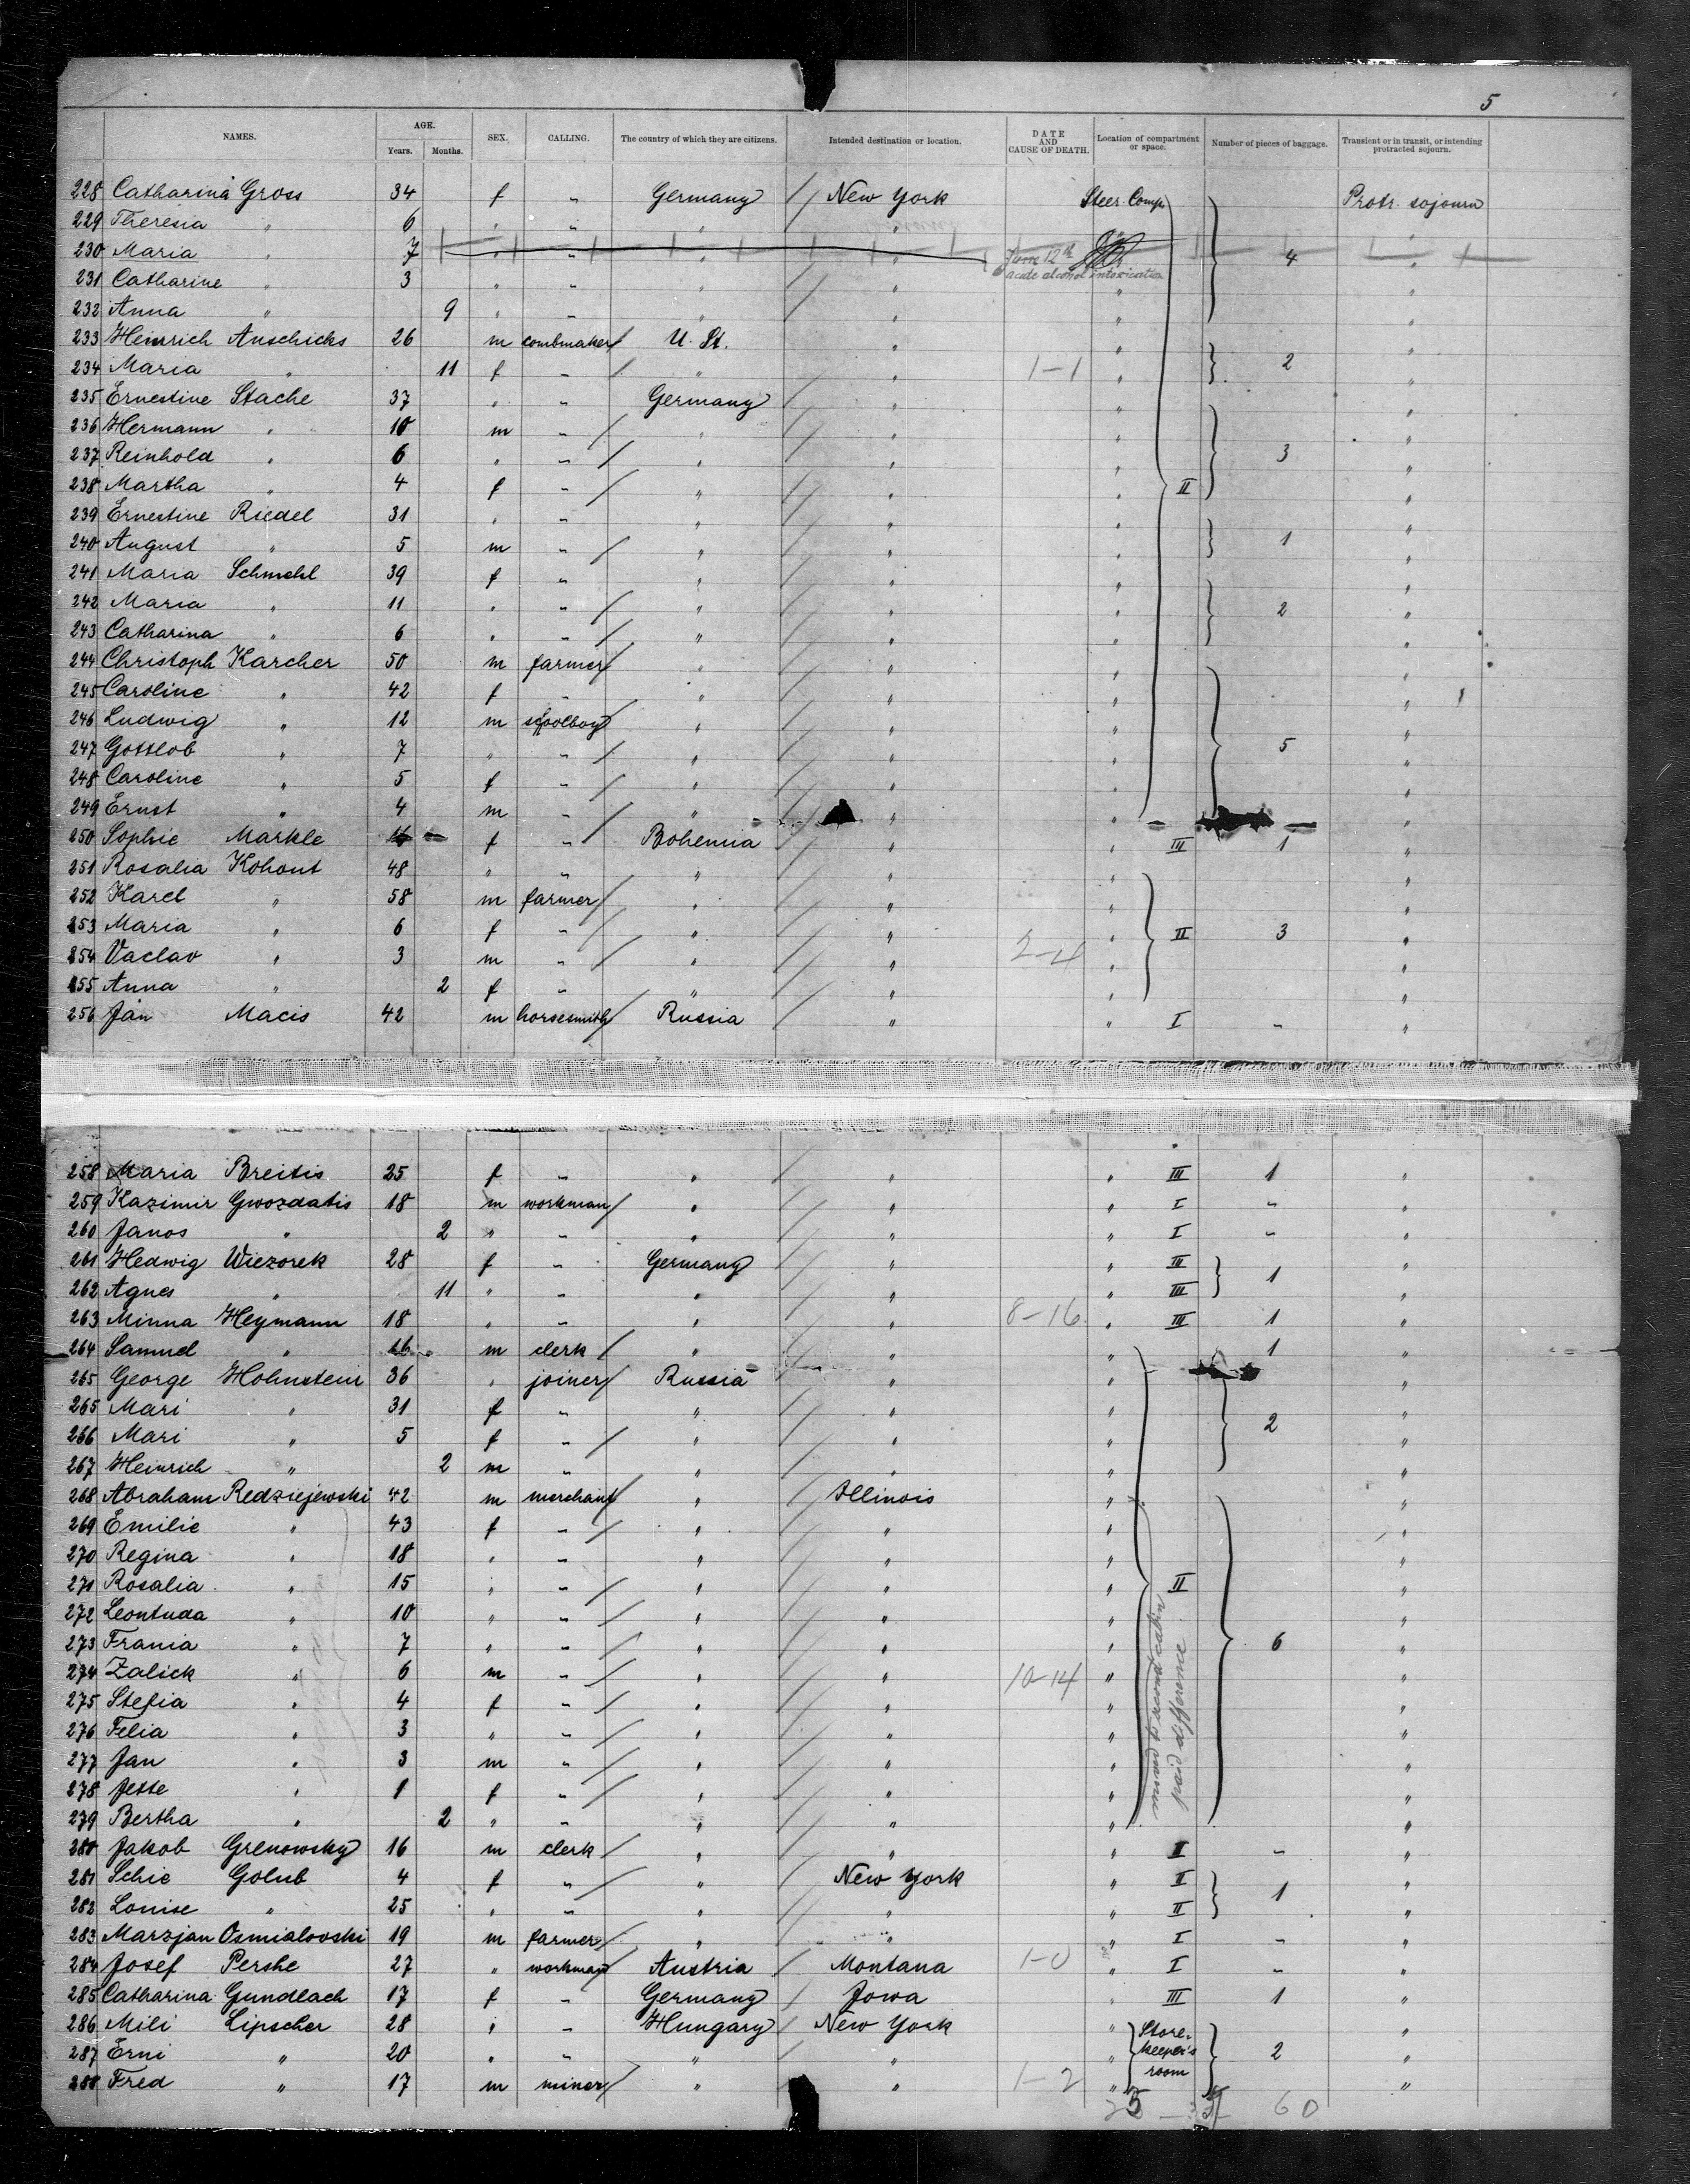 5
NAMES. AGE. Years. Months. SEX. CALLING. The country of which they are citizens. Intended destination or location. DATE AND CAUSE OF DEATH. Location of compartment or space. Number of pieces of baggage. Transient or in transit, or intending protracted sojourn.
228 Catharina Gross 34 f " Germany New York Steer. Comp. Protr. sojourn
229 Theresia " 6 " " " "
230 Maria " 7 " " " " June 12th acute alcohol intoxication 4 "
231 Catharine " 3 " " " " " "
232 Anna " 9 " " " " " "
233 Heinrich Anschicks 26 m combmaker U. St. " " "
234 Maria " 11 f " " " 1-1 " 2 "
235 Ernestine Stache 37 " " Germany " " "
236 Hermann " 10 m " " " " "
237 Reinhold " 6 " " " " " 3 "
238 Martha " 4 f " " " " II "
239 Ernestine Riedel 31 " " " " " "
240 August " 5 m " " " " 1 "
241 Maria Schmehl 39 f " " " " "
242 Maria " 11 " " " " " 2 "
243 Catharina " 6 " " " " " "
244 Christoph Karcher 50 m farmer " " " "
245 Caroline " 42 f " " " " "
246 Ludwig " 12 m schoolboy " " " "
247 Gottlob " 7 " " " " " 5 "
248 Caroline " 5 f " " " " "
249 Ernst " 4 m " " " " "
250 Sophie Markle 16 f " Bohemia " " III 1 "
251 Rosalia Kohout 48 " " " " " "
252 Karel " 58 m farmer " " " "
253 Maria " 6 f " " " " II 3 "
254 Vaclav " 3 m " " " 2-4 " "
255 Anna " 2 f " " " " "
256 Jan Macis 42 m horsesmith Russia " " I " "
258 Maria Breitis 25 f " " " " III 1 "
259 Kazimir Gwozdatis 18 m workman " " " I " "
260 Janos " 2 " " " " " I " "
261 Hedwig Wiezorek 28 f " Germany " " III "
262 Agnes " 11 " " " " " III 1 "
263 Minna Heymann 18 " " " " 8-16 " III 1 "
264 Samuel " 16 m clerk " " " 1 "
265 George Hohnstein 36 " joiner Russia " " "
265 Mari " 31 f " " " " "
266 Mari " 5 f " " " " 2 "
267 Heinrich " 2 m " " " " "
268 Abraham Redziejewski 42 m merchant " Illinois " "
269 Emilie " 43 f " " " " "
270 Regina " 18 " " " " " "
271 Rosalia " 15 " " " " " II "
272 Leontuda " 10 " " " " " "
273 Frania " 7 " " " " " 6 "
274 Zalick " 6 m " " " 10-14 " "
275 Stefia " 4 f " " " " "
276 Felia " 3 " " " " " "
277 Jan " 3 m " " " " "
278 Jette " 1 f " " " " "
279 Bertha " 2 " " " " " "
moved to second cabin
paid difference
280 Jakob Grenowsky 16 m clerk " " " II " "
281 Schie Golub 4 f " " New York " II "
282 Louise " 25 " " " " " II 1 "
283 Marzjan Osmialovski 19 m farmer " " " I " "
284 Josef Pershe 27 " workman Austria Montana 1-0 " I " "
285 Catharina Gundlach 17 f " Germany Jowa " III 1 "
286 Mili Lipscher 28 " " Hungary New York " Store- "
287 Erni " 20 " " " " " keeper's 2 "
288 Fred " 17 m miner " " 1-2 " room "
60